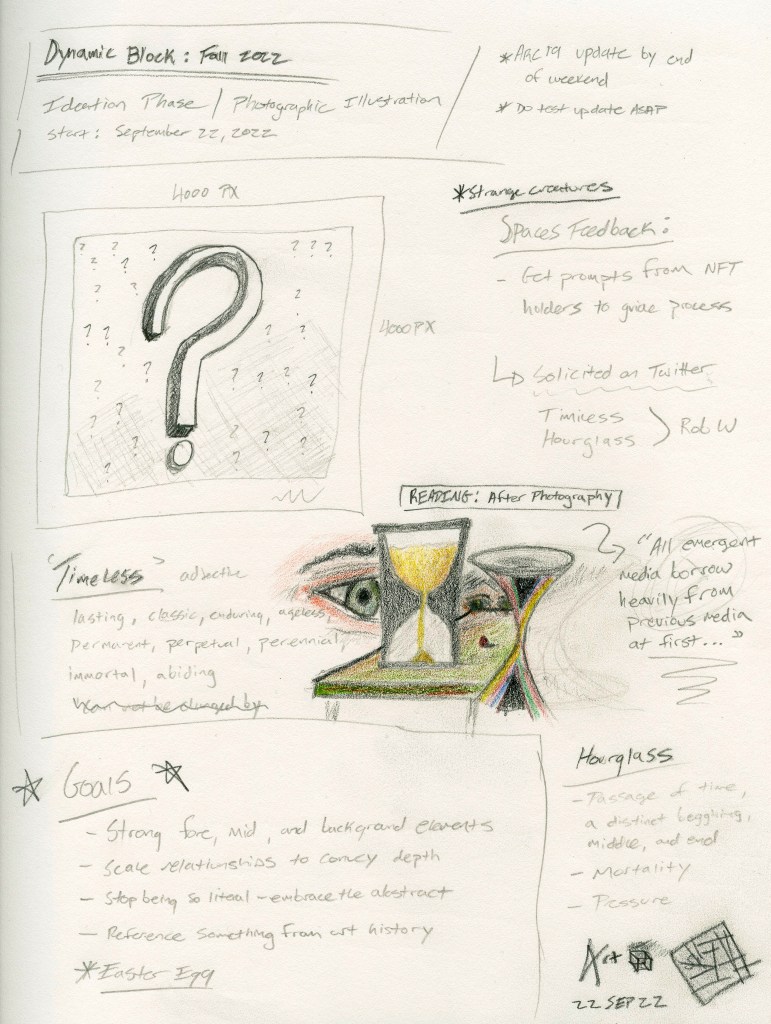 Dynamic Block: Fall 2022
Ideation Phase / Photographic Illustration
start: September 22, 2022
* ARC 19 update by end
of weekend
* Do test update ASAP
4000 PX
4000 PX
? ? ? ? ? ? ? ? ? ? ? ? ? ? ? ? ? ? ? ? ? ? ? ? ? ? ? ? ? ?
*Strange creatures
Spaces Feedback:
- Get prompts from NFT
holders to guide process
Solicited on Twitter
Timeless
Hourglass
Rob W
READING: After Photography
"All emergent
media borrow
heavily from
previous media
at first..."
"Timeless" adjective
lasting, classic, enduring, ageless,
permanent, perpetual, perennial,
immortal, abiding
Goals
- Strong fore, mid, and background elements
- Scale relationships to convey depth
- Stop being so literal - embrace the abstract
- Reference something from art history
*Easter Egg
Hourglass
- Passage of time,
a distinct beggining,
middle, and end
- Mortality
- Pressure
Art
22 SEP 22